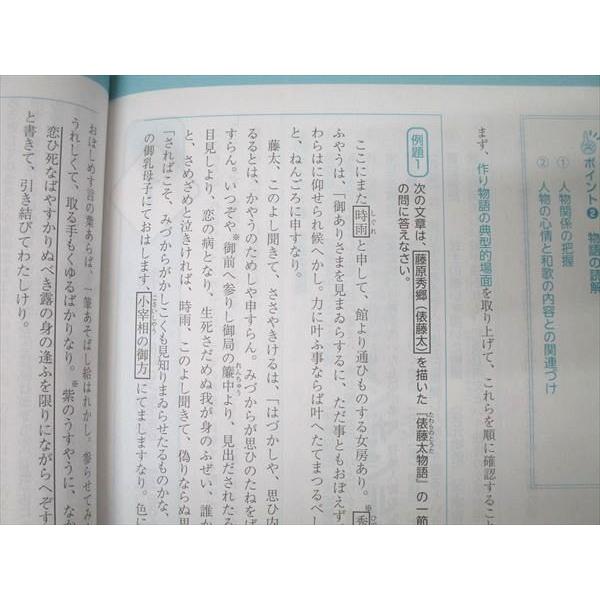 ポイント❷ 物語の読解
① 人物関係の把握
② 人物の心情と和歌の内容との関連づけ
まず、作り物語の典型的場面を取り上げて、これらを順に確認すること
例題1
次の文章は、藤原秀郷（俵藤太）を描いた『俵藤太物語』の一節
の問に答えなさい。
ここにまた時雨と申して、館より通ひものする女房あり。
ふやうは、「御ありさまを見まゐらするに、ただ事ともおぼえず
わらはに仰せられ候へかし。力に叶ふ事ならば叶へたてまつるべし
と、ねんごろに申すなり。
藤太、このよし聞きて、ささやきけるは、「はづかしや、思ひ内
るるとは、かやうのためしや申すらん。みづからが思ひのたねをば
すらん。いつぞや※御前へ参りし御局の簾中より、見出だされたる
目見しより、恋の病となり、生死さだめぬ我が身のふぜい、誰か
と、さめざめと泣きければ、時雨、このよし聞きて、偽りならぬ思
「さればこそ、みづからがかしこくも見知りまゐらせたるものかな、
の御乳母子にておはします、小宰相の御方にてましますなり。色に
おぼしめす言の葉あらば、一筆あそばし給はれかし。参らせてみ
うれしくて、取る手もくゆるばかりなり。※紫のうすやうに、なか
恋ひ死なばやすかりぬべき露の身の逢ふを限りにながらへぞす
と書きて、引き結びてわたしけり。